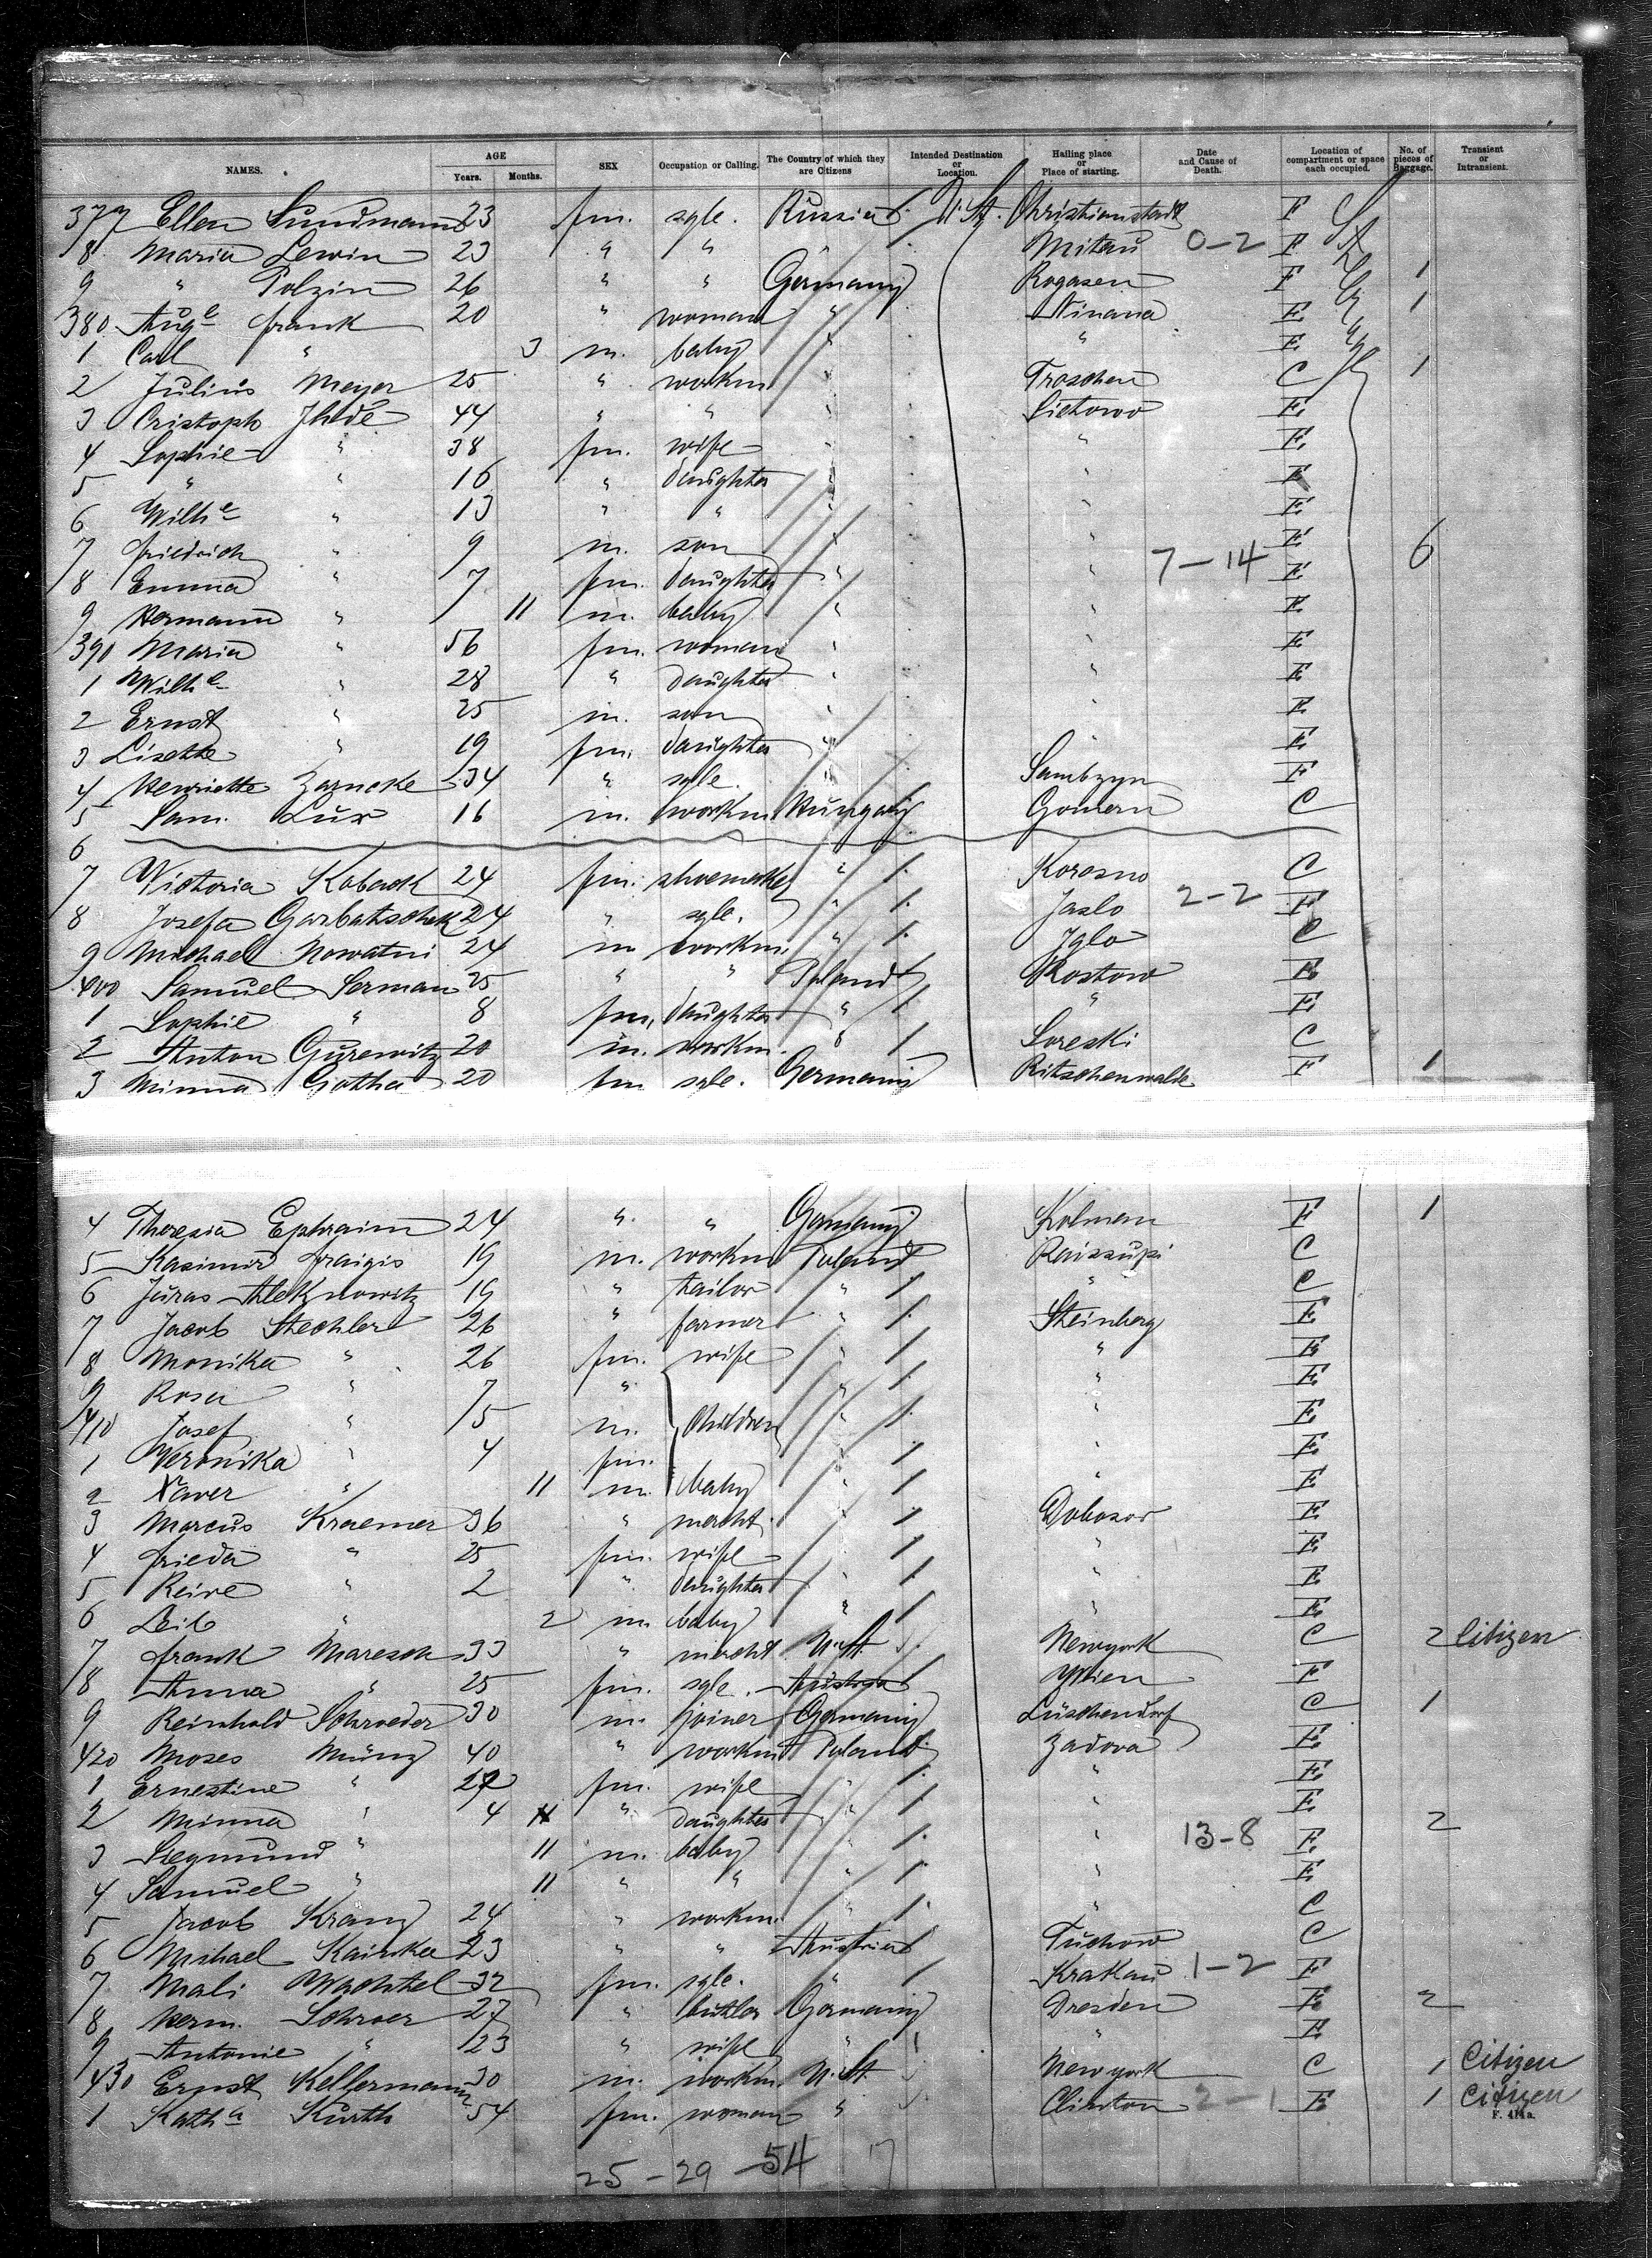 NAMES. AGE Years. Months. SEX Occupation or Calling. The Country of which they are Citizens Intended Destination or Location. Hailing place or Place of starting. Date and Cause of Death. Location of compartment or space each occupied. No. of pieces of Baggage. Transient or Intransient.
377 Ellen Sundmann 23 fm. sgle. Russia U. St. Christianstadt F
8 Maria Lewin 23 " " Mitau 0-2 F
9 " Polzin 26 " " Germany Rogasen F 1
380 Auge Frank 20 " woman " Ninana E 1
1 Carl " 3 m. baby " " E
2 Julius Meyer 25 " workm " Troschen C 1
3 Cristoph Jhde 44 " " " Lietowo E
4 Sophie " 38 fm. wife " " E
5 " " 16 " daughter " " E
6 Wilhe " 13 " " " " E
7 Friedrich " 9 m. son " " E
8 Emma " 7 fm. daughter " " 7-14 E 6
9 Hermann " 11 m. baby " " E
390 Maria " 56 fm. woman " " E
1 Wilhe " 28 " daughter " " E
2 Ernst " 25 m. son " " E
3 Lisette " 19 fm. daughter " " E
4 Henriette Zarncke 34 " sgle. " Sambzyn F
5 Sam. Lux 16 m. workm. Hungary Gomern C
6
7 Victoria Koback 24 fm. shoemaker " Korosno C
8 Josefa Garbatschek 24 " sgle. " Jaslo 2-2 F
9 Michael Nowatni 24 m workm. " Iglo C
400 Samuel Serman 25 " " Poland Rostow E
1 Sophie " 8 fm. daughter " " E
2 Anton Gurewitz 20 m. workm. " Soreski C
3 Minna Gotha 20 fm sgle. Germany Ritschenwalde F 1
4 Theresia Ephraim 24 " " Germany Kolman F 1
5 Kasimir Fraigis 19 m. workm Poland Raissupi C
6 Juras Aleknowitz 19 " tailor " " C
7 Jacob Stechler 26 " farmer " Steinberg E
8 Monika " 26 fm. wife " " E
9 Rosa " 7 " " " E
410 Josef " 5 m. children " " E
1 Veronika " 4 fm. " " E
2 Xaver " 11 m. baby " " E
3 Marcus Kraemer 36 " mercht " Dobosor E
4 Frieda " 25 fm. wife " " E
5 Reive " 2 " daughter " " E
6 Leib " 2 m. baby " " E
7 Frank Maresch 33 " mercht U. St. Newyork C 2 Citizen
8 Anna " 25 fm. sgle. Austria Wien F
9 Reinhold Schroeder 30 m. joiner Germany Lüschendorf C 1
420 Moses Münz 40 " workm Poland Zadova E
1 Ernestine " 27 fm. wife " " E
2 Minna " 4 " daughter " " E 2
3 Siegmund " 11 m. baby " " 13-8 E
4 Samuel " 11 " " " " E
5 Jacob Kranz 24 " workm. " " C
6 Mihael Kainka 23 " " Austria Tuchow C
7 Mali Wachtel 32 fm. sgle. " Krakau 1-2 F
8 Herm. Schroer 27 " butler Germany Dresden E 2
9 Antonie " 23 " wife " " E
430 Ernst Kellermann 30 m. workm. U. St. Newyork C 1 Citizen
1 Katha Kurth 54 fm. woman " Clinton 2-1 E 1 Citizen
F. 414a.
25-29-54 17